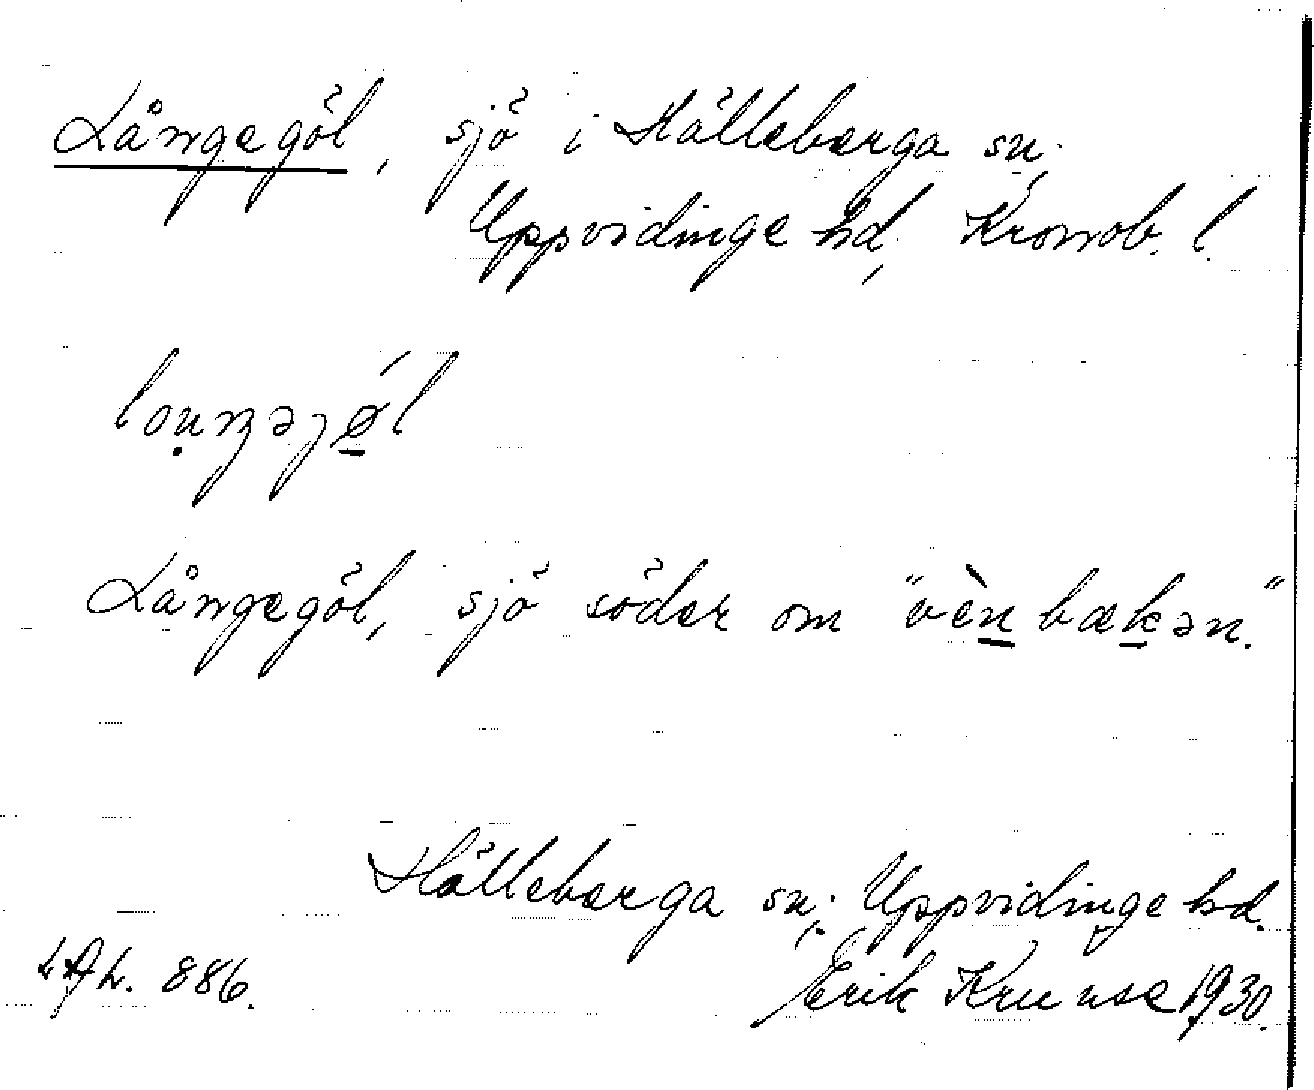 Långegöl, sjö i Hälleberga sn.
Uppvidinge hd, Kronob. l.
Långegöl, sjö söder om "vèn bækən."
Hälleberga sn; Uppvidinge hd.
L A L. 886.
Erik Kruuse 1930.